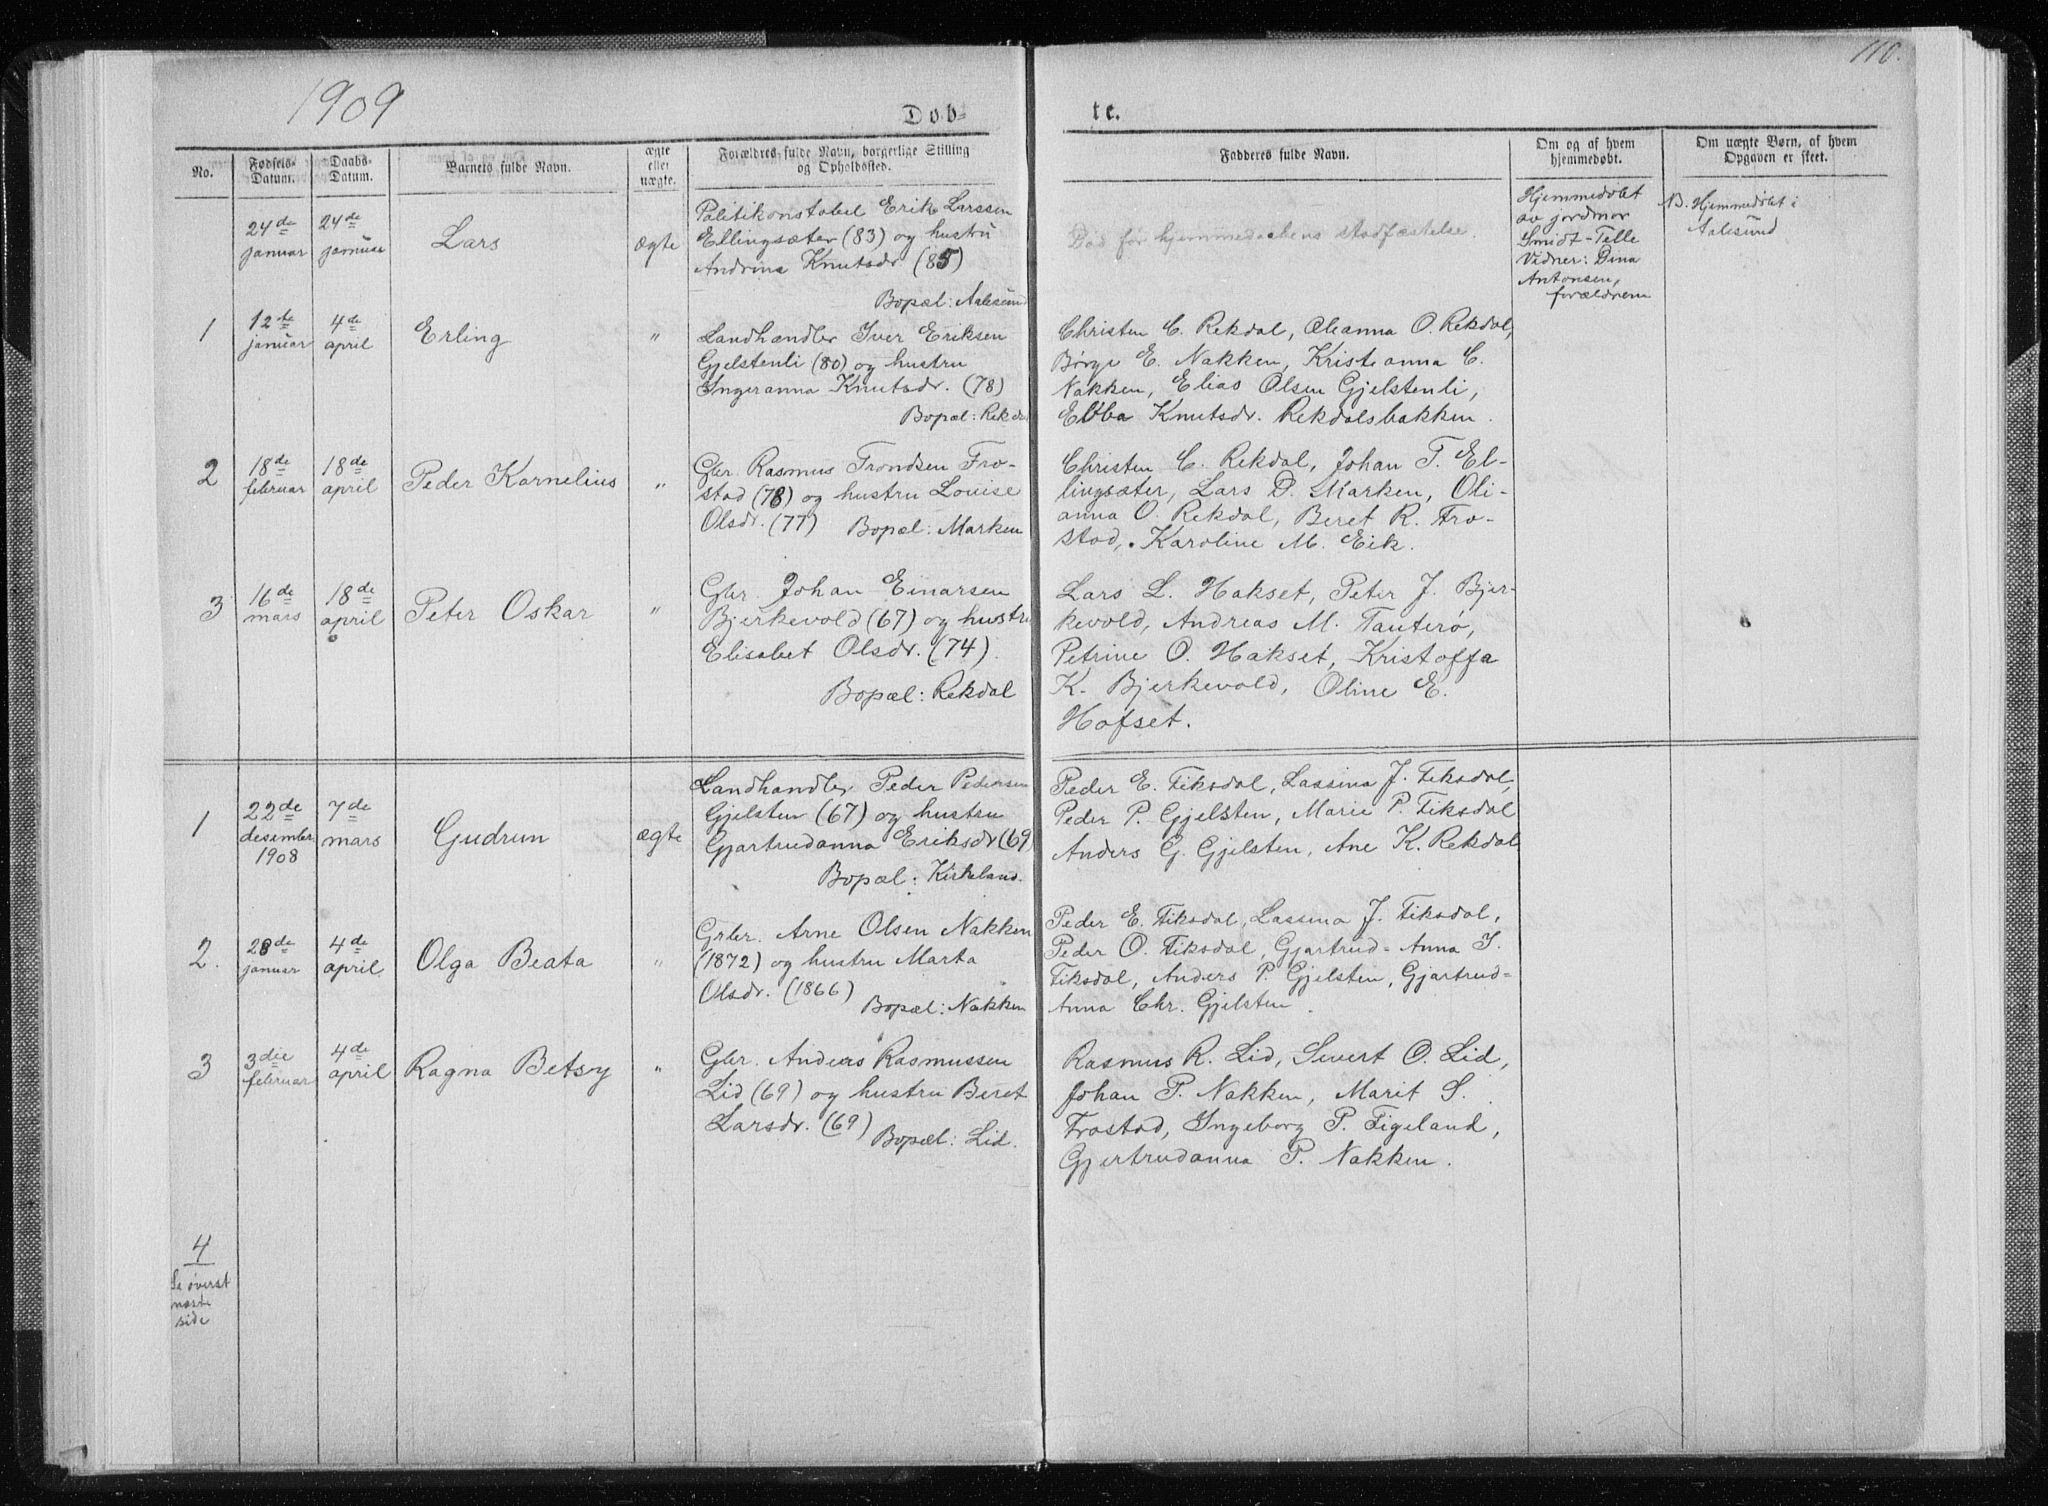 1909
110.
Døb-
te.
No.
Fødsels-
Datum.
Daabs-
Datum.
Barnets fulde Navn.
ægte
eller
uægte.
Forældres fulde Navn, borgerlige Stilling
og Opholdssted.
Fadderes fulde Navn.
Om og af hvem
hjemmedøbt.
Om uægte Børn, af hvem
Opgaven er skeet.
24de
januar
24de
januar
Lars
ægte
Politikonstabel Erik Larssen
Ellingsæter (83) og hustru
Andrina Knutsdr (85)
Bopæl: Aalesund
Død før hjemmedaabens stadfæstelse.
Hjemmedøbt
av jordmor
Smidt-Telle
Vidner: Dina
Antonsen,
forældrene
N.B. Hjemmedøbt i
Aalesund
1
12te
januar
4de
april
Erling
"
Landhandler Iver Eriksen
Gjelstenli (80) og hustru
Ingeranna Knutsdr. (78)
Bopæl: Rekdal
Christen C. Rekdal, Oleanna O. Rekdal,
Børge E. Nakken, Kristianna C.
Nakken, Elias Olsen Gjelstenli,
Ebba Knutsdr. Rekdalsbakken.
2
18de
februar
18de
april
Peder Kornelius
"
Gbr. Rasmus Trondsen Fro-
stad (78) og hustru Louise
Olsdr. (77) Bopæl: Marken
Christen C. Rekdal, Johan T. El-
lingsæter, Lars D. Marken, Oli-
anna O. Rekdal, Beret R. Fro-
stad, Karoline M. Eik.
3
16de
mars
18de
april
Peter Oskar
"
Gbr. Johan Einarsen
Bjerkevold (67) og hustru
Elisabet Olsdr. (74).
Bopæl: Rekdal
Lars L. Hakset, Peter J. Bjer-
kevold, Andreas M. Tauterø,
Petrine O. Hakset, Kristoffa
K. Bjerkevold, Oline E.
Hofset.
1
22de
desember
1908
7de
mars
Gudrun
ægte
Landhandler Peder Pedersen
Gjelsten (67) og hustru
Gjartrudanna Eriksdr (69)
Bopæl: Kirkeland.
Peder E. Fiksdal, Lassina J. Fiksdal,
Peder P. Gjelsten, Marie P. Fiksdal
Anders G. Gjelsten, Ane K. Rekdal
2.
28de
januar
4de
april
Olga Beata
"
Grbr. Arne Olsen Nakken
(1872) og hustru Marta
Olsdr. (1866)
Bopæl: Nakken
Peder E. Fiksdal, Lassina J. Fiksdal,
Peder O. Fiksdal, Gjartrud-Anna I.
Fiksdal, Anders P. Gjelsten, Gjartrud-
Anna Chr. Gjelsten.
3
3die
februar
4de
april
Ragna Betsy
"
Gbr. Anders Rasmussen
Lid (69) og hustru Beret
Larsdr. (69)
Bopæl: Lid.
Rasmus R. Lid, Sivert O. Lid,
Johan P. Nakken, Marit S.
Frostad, Ingeborg P. Figeland,
Gjertrudanna P. Nakken.
4
Se øverst
næste
side